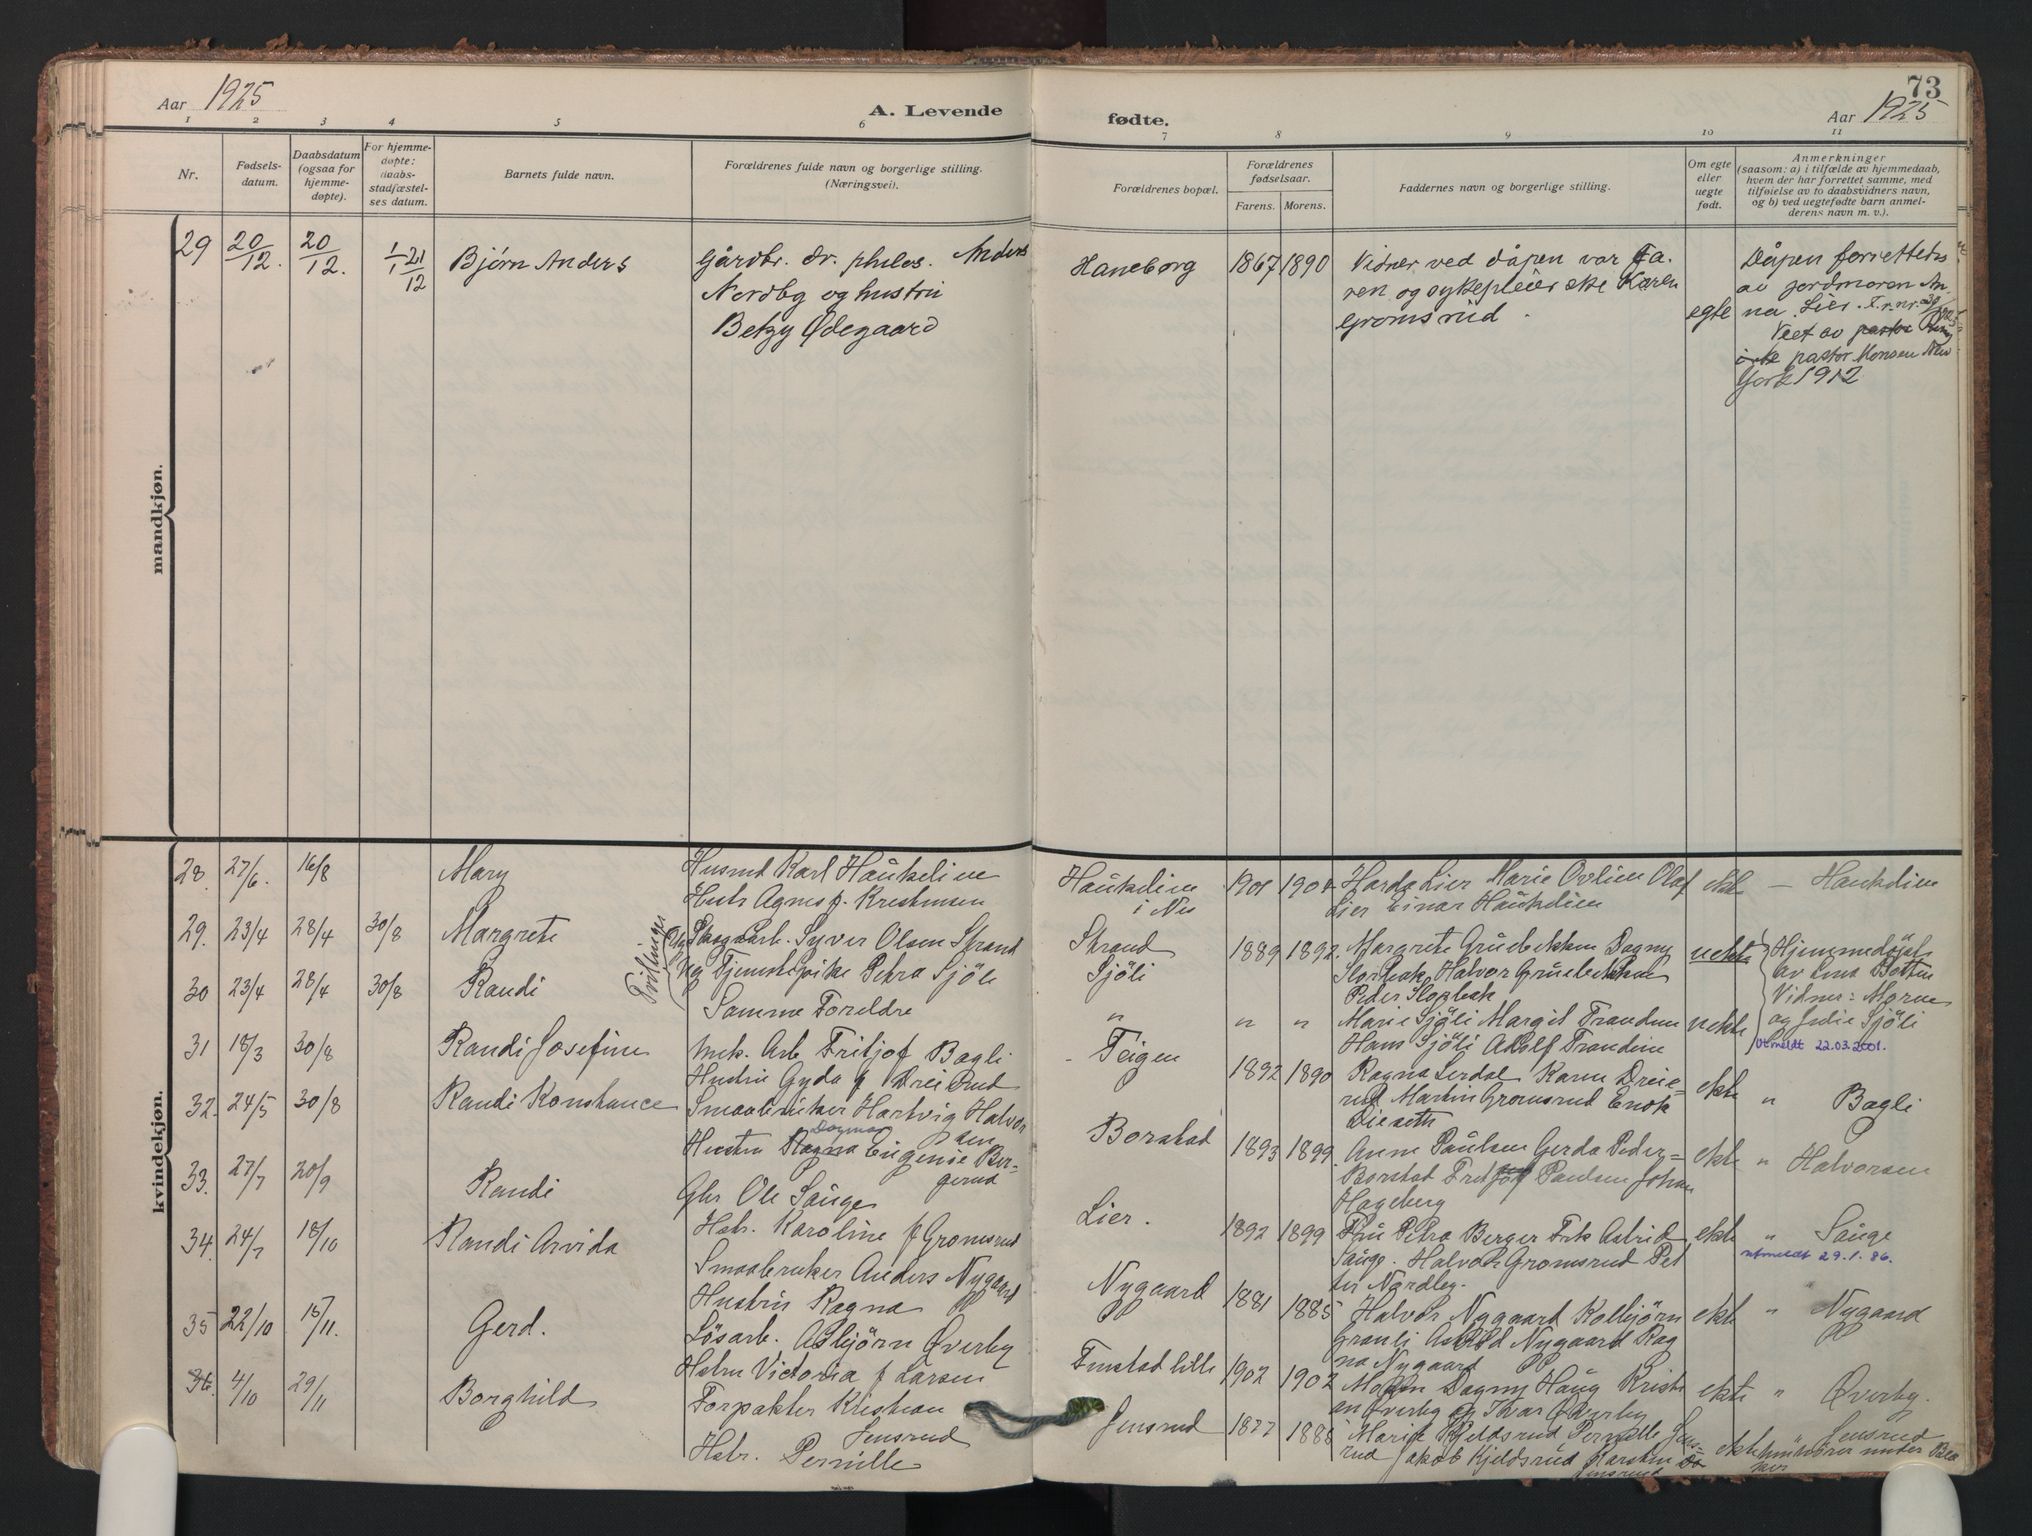 Aar 1925
A. Levende
fødte.
73
Aar 1925
1 2 3 4 5 6 7 8 9 10 11
Nr.
Fødsels-
datum.
Daabsdatum
(ogsaa for
hjemme-
døpte).
For hjemme-
døpte:
daabs-
stadfæstel-
ses datum.
Barnets fulde navn.
Forældrenes fulde navn og borgerlige stilling.
(Næringsvei).
Forældrenes bopæl.
Forældrenes
fødselsaar.
Farens. Morens.
Faddernes navn og borgerlige stilling.
Om egte
eller
uegte
født.
Anmerkninger
(saasom: a) i tilfælde av hjemmedaab,
hvem der har forrettet samme, med
tilføielse av to daabsvidners navn,
og b) ved uegtefødte barn anmel-
derens navn m. v.).
mandkjøn.
29 20/12. 20/12. 1/1 21/12 Bjørn Anders
Gårdbr. dr. philos. Anders
Nordby og hustru
Betzy Ødegaard
Haneborg 1867 1890
Vidner ved dåpen var Fa-
ren og sykepleierske Karen
Gromsrud.
egte
Dåpen forrettedes
av jordmoren An-
na Lier.
Viet av pastor
pastor Monsen New
York 1912
kvindekjøn.
28. 27/6. 16/8 Mary
Husmd Karl Haukelien
Hustr Agnes f. Kristensen
Haukelien
i Nes
1901 190
Lier Marie Ovlien Olaf
Lier Einar Haukelien
ekte — Haukelien
29. 23/4 28/4 30/8 Margrete
Tvillinger
Skogsarb. Syver Olsen Strand
og Tjenstepike Petra Sjöli
Strand
Sjöli
1889 1892.
Margrete Gruebekken Dagny
Slorbæk, Halvor Gruebekken
Peder Slorbæk
uekte
Hjemmedöpt
av Lina Botten
Vidner: Moren
og Julie Sjöli
utmeldt 22.03.2001.
30 23/4 28/4 30/8 Randi
Samme Foreldre
" " "
Marie Sjöli Margit Trandem
Hans Sjöli Adolf Trandem
uekte
31 18/3 30/8 Randi Josefine
Mek. Arb Fritjof Bagli
Hustru Gyda f Dreierud
Teigen 1892 1890
Ragna Lerdal Karen Dreie-
rud Martin Gromsrud Enok
Dieseth
ekte " Bagli
32. 24/5 30/8 Randi Konstance
Smaabruker Hartvig Halvor
sen
Dagmar
Hustru Ragna Eugenie Ber-
gerud
Borstad 1893 1899.
Anne Paulsen Gerda Peder-
Borstad Fritjof Paulsen Johan
Hageberg
ekte " Halvorsen
33. 27/7 20/9 Randi
Gbr Ole Sauge
Hstr. Karoline f Gromsrud
Lier. 1892 1899
Fru Petra Berger Frk Astrid
Sauge. Halvor Gromsrud Pet
ter Nordby.
ekte " Sauge
utmeldt 29.1.86.
34. 24/7 18/10 Randi Arvida
Smaabruker Anders Nygaard
Hustru Ragna
Nygaard 1881 1885
Halvor Nygaard Kolbjörn
Granli Astrid Nygaard Rag
na Nygaard
ekte " Nygaard
35 22/10 15/11. Gerd.
Lösarb. Asbjörn Överby
Hstru Victoria f Larsen
Finstad lille 1902 1902
Dagny Haug Krist
an Överby og Ivar Överby
ekte " Överby.
36. 4/10 29/11 Borghild
Forpakter Kristian
Jensrud
Hstr. Pernille
Jensrud 1877 1888
Marie Kjeldsrud Pernille Jens-
rud Jakob Kjeldsrud Karsten
Jensrud
ekte " Jensrud